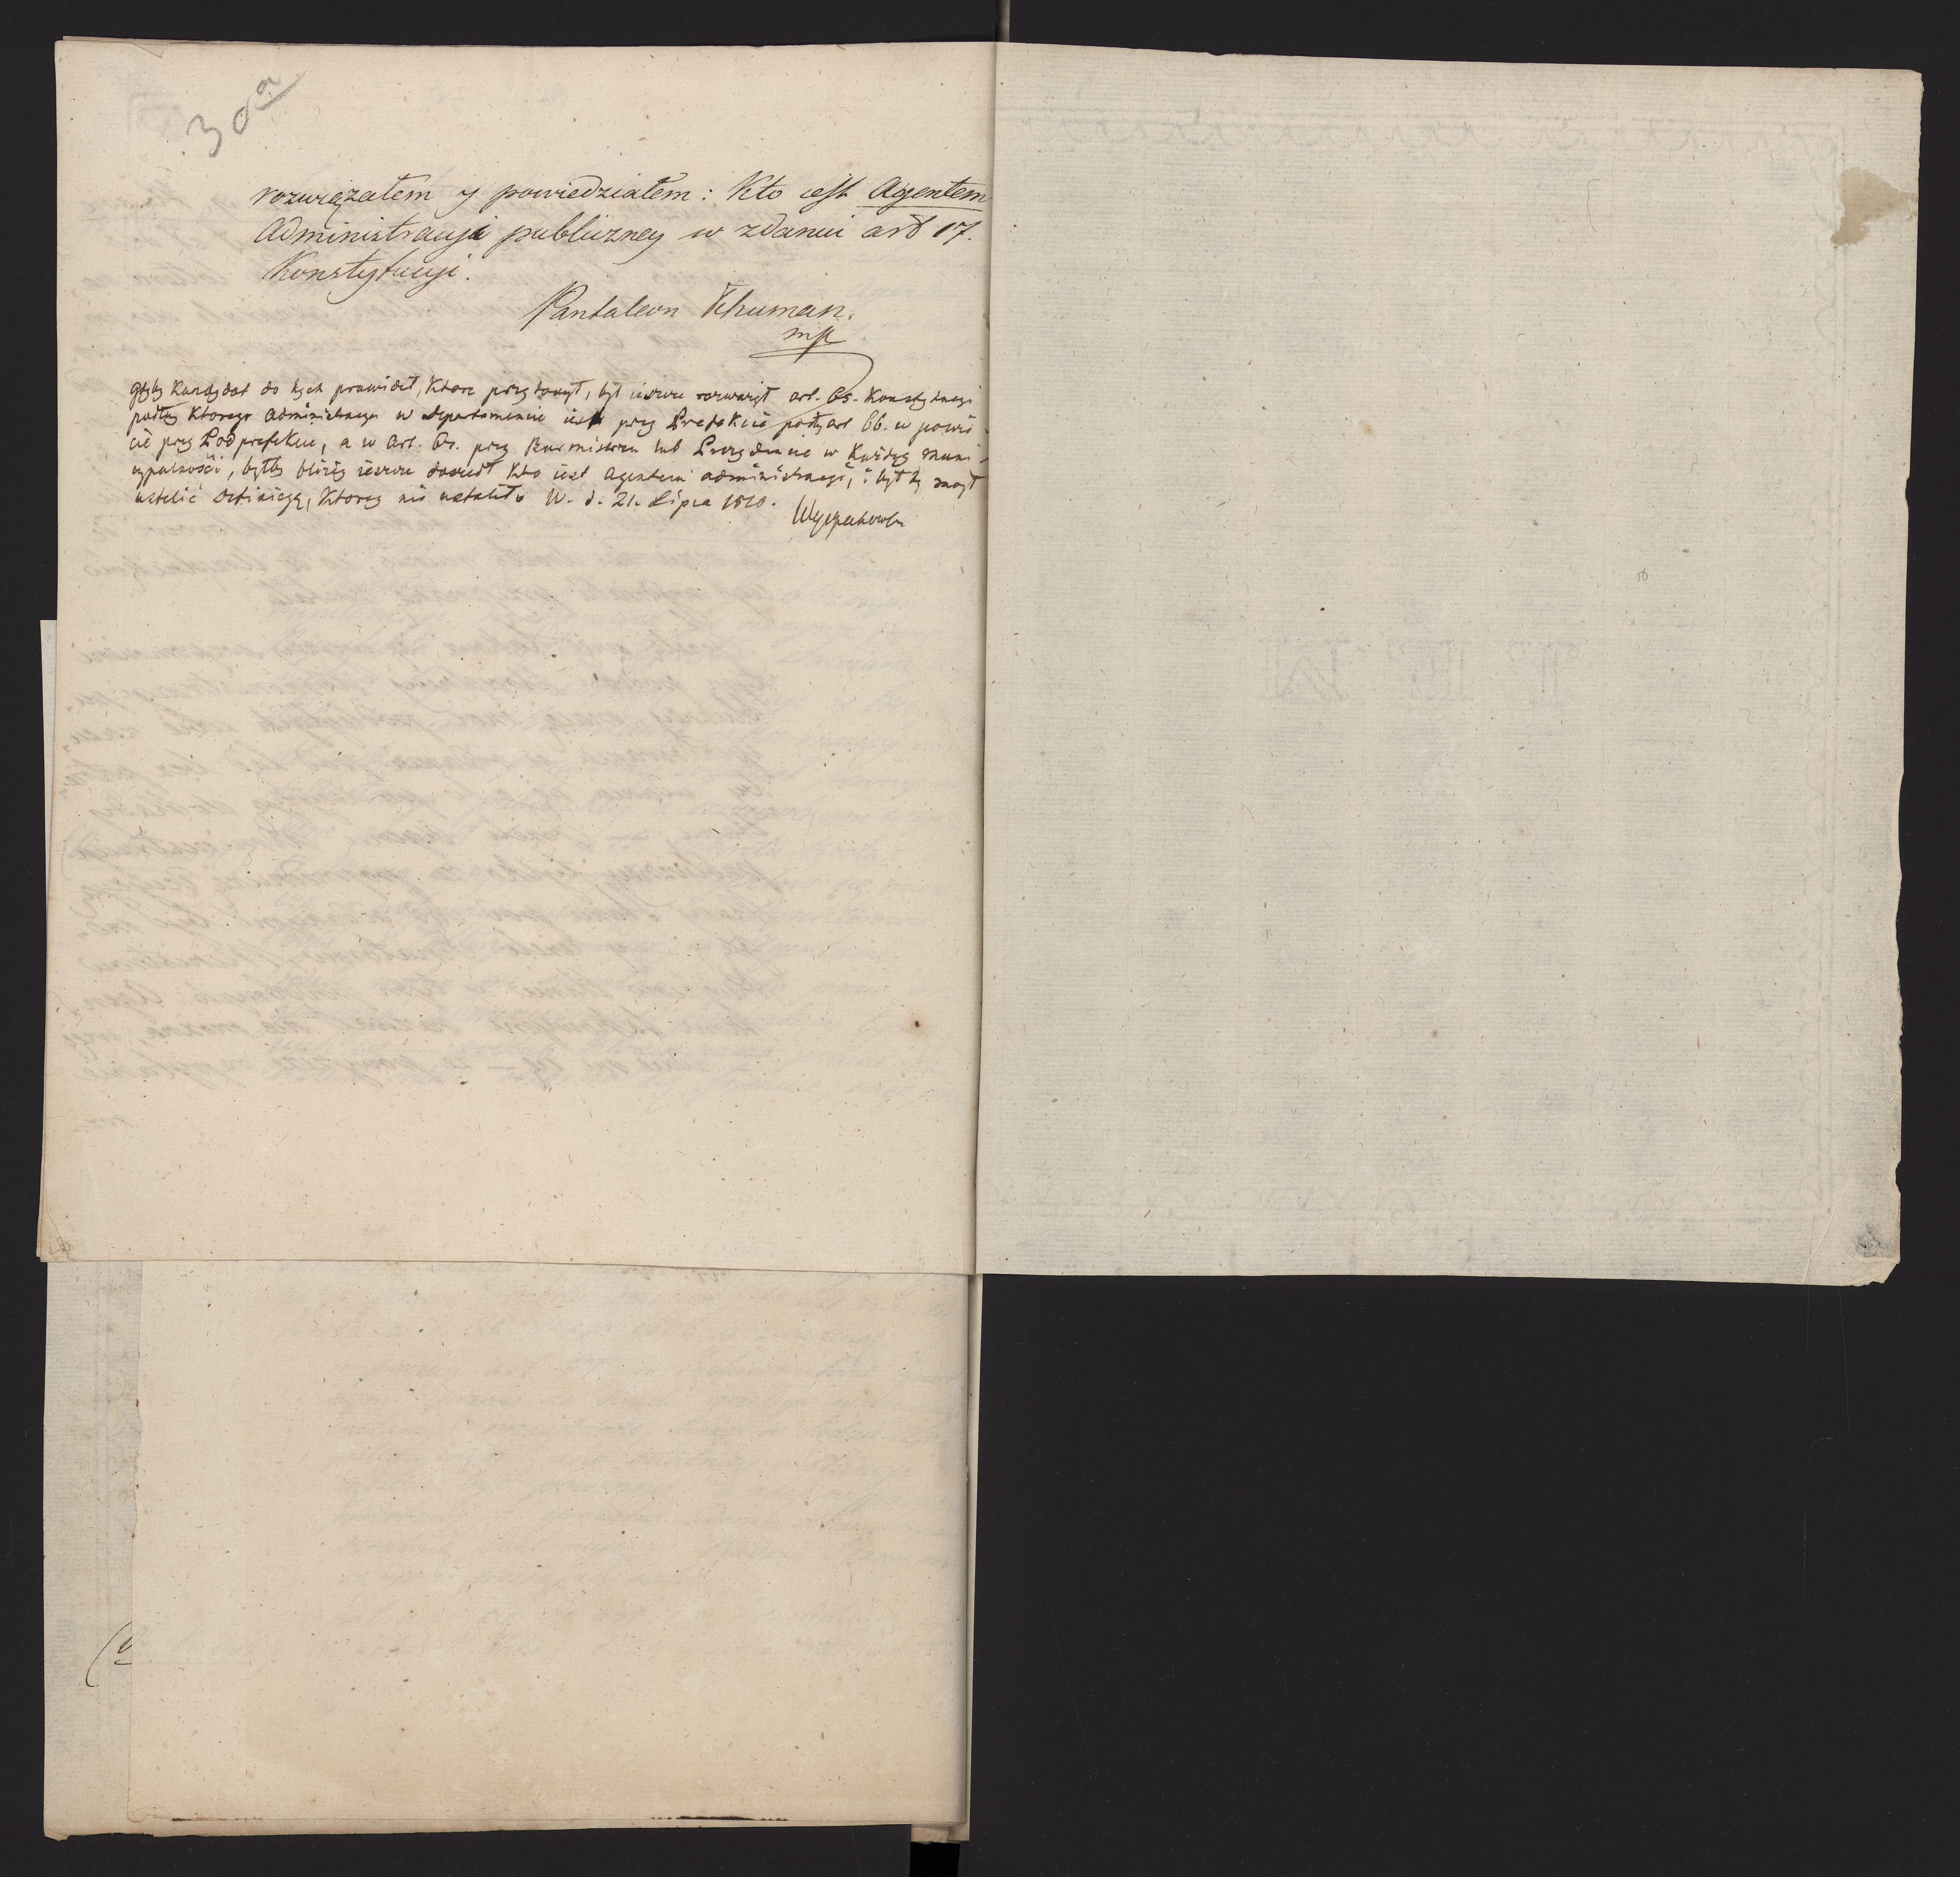 30a
rozwiązałem y powiedziałem: Kto iest Agentem
Administracyi publiczney w zdaniu art 17.
Konstytucyi.
Pantaleon Thuman.
mp
gdyby Kandydat do tych prawideł, które przytoczył, był ieszcze rozważył art. 65. Konstytucyi
podług którego administracya w departamencie iest przy Prefekcie podług art 66. w powie
cie przy Podprefekcie, a w art. przy Burmistrzu lub Prezydencie w każdey muni-
cypalności, byłby bliżey ieszcze doszedł kto iest agentem administracyi, i byłby mógł
ustalić definicyą, którey nie ustalił W. d. 21. Lipca 1810.
Wyczechowski